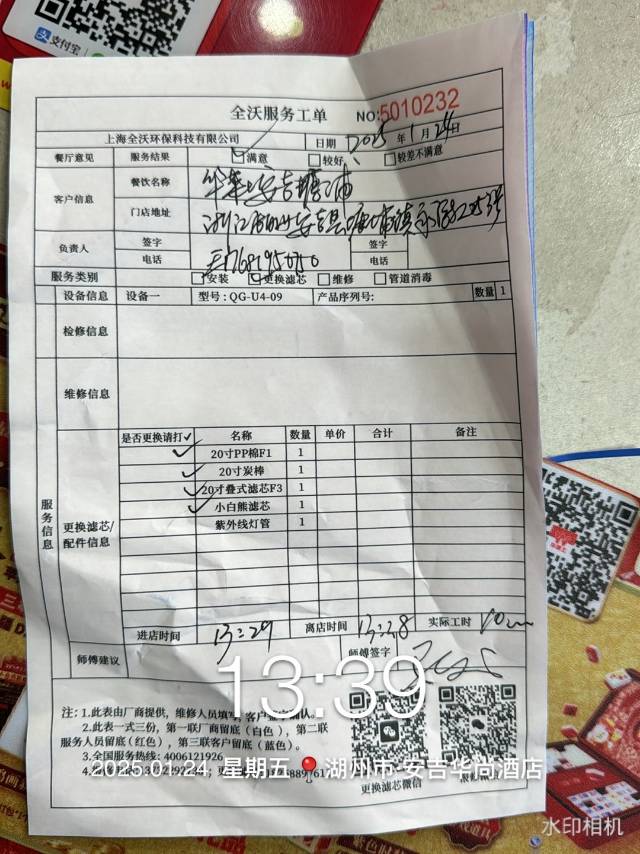 支付宝
全沃服务工单 NO:5010232
上海全沃环保科技有限公司 日期 2025 年 1 月 24 日
餐厅意见 服务结果 满意 较好 较差不满意
客户信息 餐饮名称 华莱士安吉塘浦
门店地址 浙江湖州安吉县
负责人 签字 签字
电话 电话
服务类别 安装 更换滤芯 维修 管道消毒
设备信息 设备一 型号:QG-U4-09 产品序列号: 数量 1
检修信息
维修信息
服务信息
更换滤芯/配件信息
是否更换请打✓ 名称 数量 单价 合计 备注
✓ 20寸PP棉F1 1
✓ 20寸炭棒 1
✓ 20寸叠式滤芯F3 1
✓ 小白熊滤芯 1
紫外线灯管 1
进店时间 13:29 离店时间 13:38 实际工时
师傅建议 师傅签字
13:39
注:1.此表由厂商提供,维修人员填写,客户签字确认。
2.此表一式三份,第一联厂商留底(白色),第二联
服务人员留底(红色),第三联客户留底(蓝色)。
3.全国服务热线:4006121926
2025.01.24 星期五 湖州市·安吉华尚酒店
更换滤芯微信
水印相机